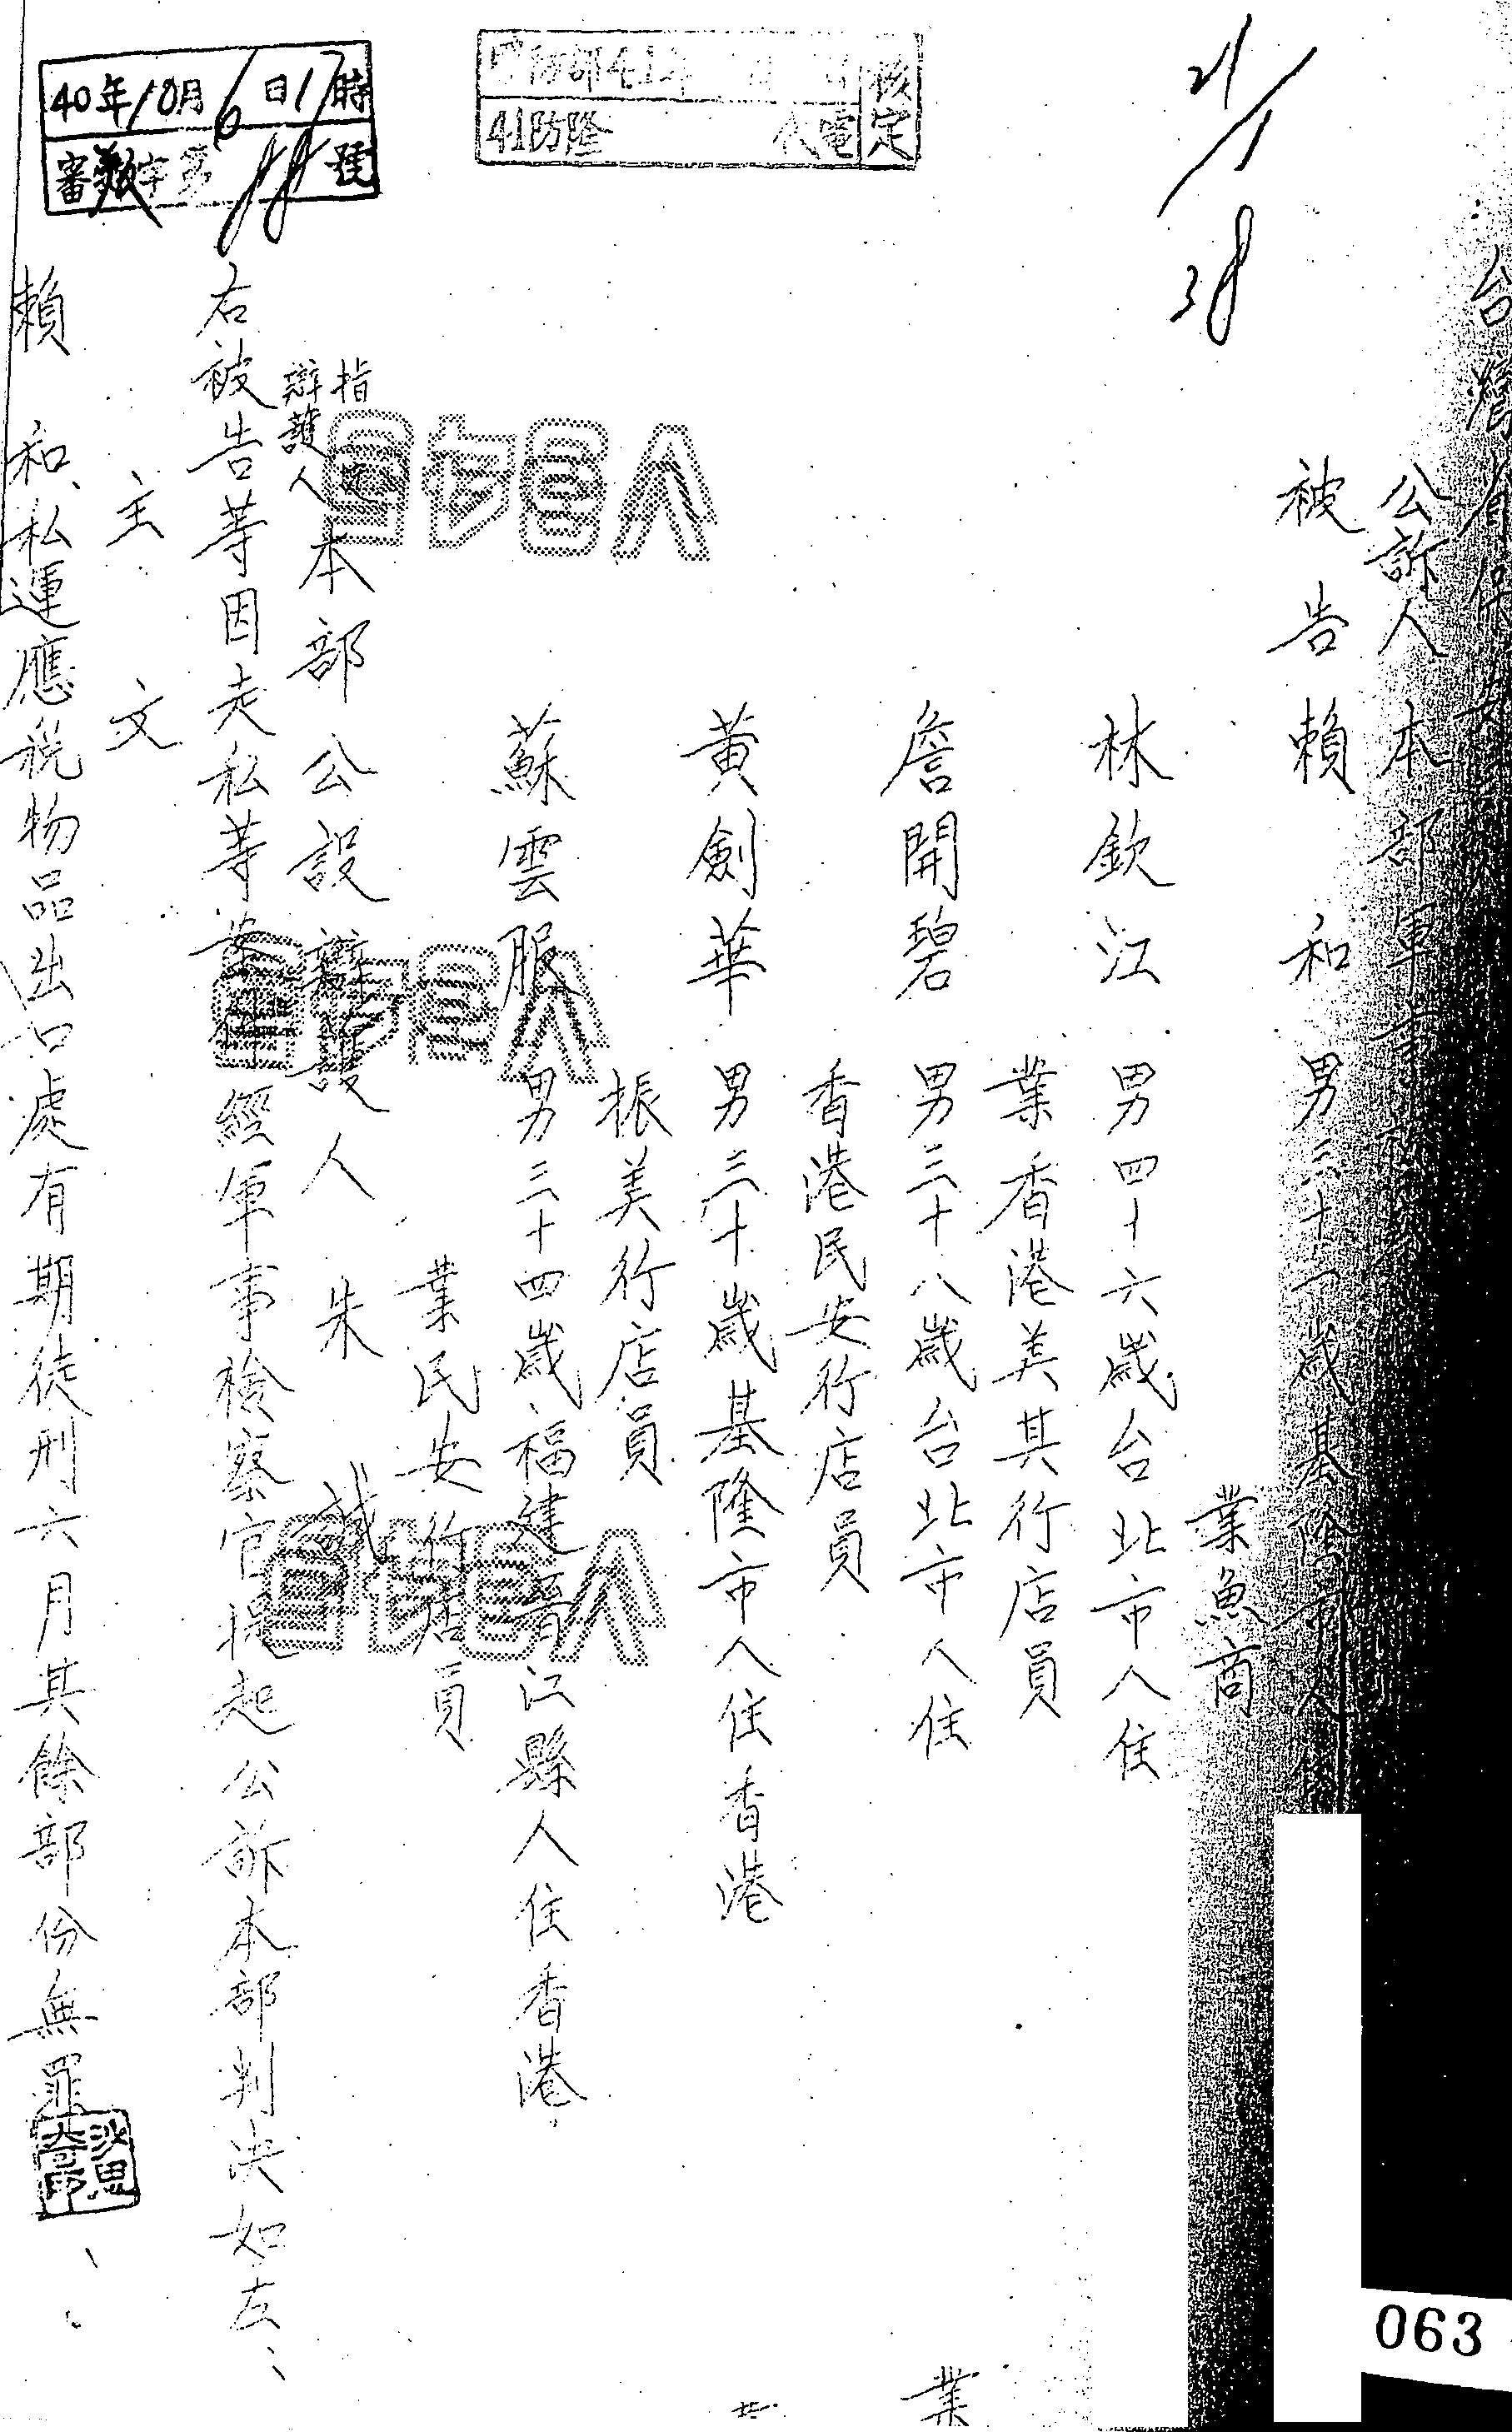 台灣省保安
公訴人本部軍事
被告賴和男三十一歲基隆市人
業魚商
林欽江男四十六歲台北市人住
業香港美其行店員
詹開碧男三十八歲台北市人住
業
香港民安行店員
黃劍華男三十歲基隆市人住香港
振美行店員
蘇雲服男三十四歲福建晉江縣人住香港
業民安行店員
指定
辯護人本部公設辯護人朱
右被告等因走私等案件經軍事檢察官提起公訴本部判決如左：
主文
賴和私運應稅物品出口處有期徒刑六月其餘部份無罪
40年10月6日17時
審 字第 號
國防部41年 核定
41防隆 代電
063